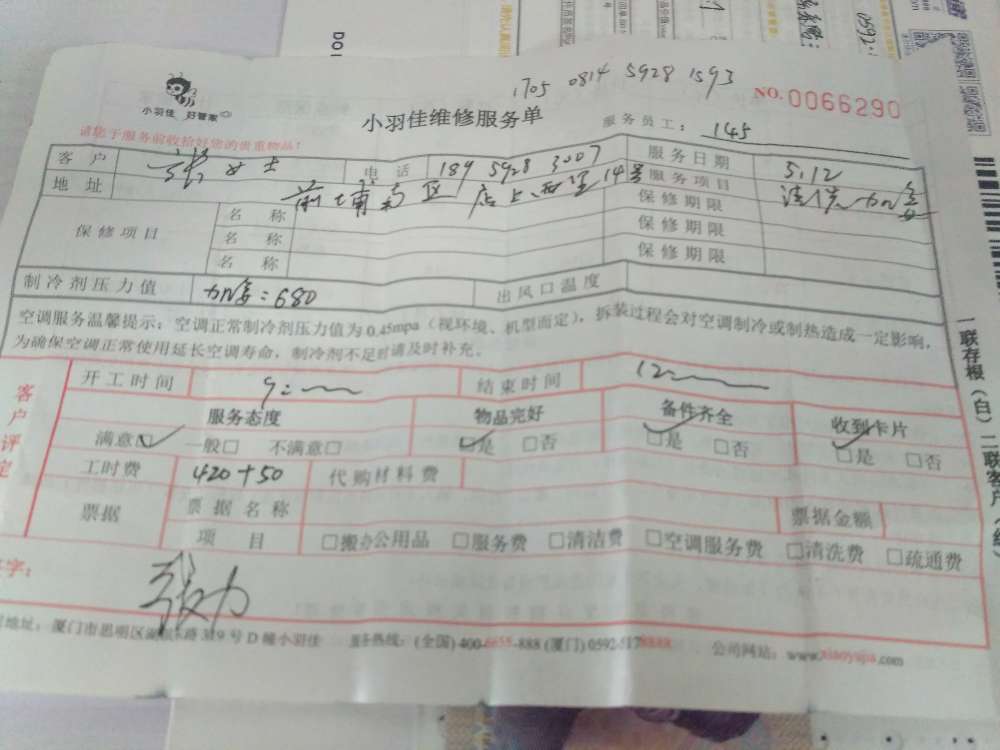 1705 0814 5928 1593
NO.0066290
小羽佳 好管家
小羽佳维修服务单
服务员工： 145
请您于服务前收拾好您的贵重物品！
客户 张女士 电话 189 5928 3007 服务日期 5.12
地址 前埔南区 店上西里14号 服务项目 清洗加氟
保修项目 名称 保修期限
名称 保修期限
名称 保修期限
制冷剂压力值 加氟：680 出风口温度
空调服务温馨提示：空调正常制冷剂压力值为0.45mpa（视环境、机型而定），拆装过程会对空调制冷或制热造成一定影响，
为确保空调正常使用延长空调寿命，制冷剂不足时请及时补充。
客户评定
开工时间 9: 结束时间 12
服务态度 物品完好 备件齐全 收到卡片
满意□ 一般□ 不满意□ □是 □否 □是 □否 □是 □否
工时费 420+50 代购材料费
票据 票据名称 票据金额
项目 □搬办公用品 □服务费 □清洁费 □空调服务费 □清洗费 □疏通费
字： 张力
地址：厦门市思明区 319号D幢小羽佳 服务热线：(全国)400-6655-888 (厦门)0592-5178888 公司网站：www.xiaoyujia.com
一联存根（白）二联客户（红）
DOI
0592: